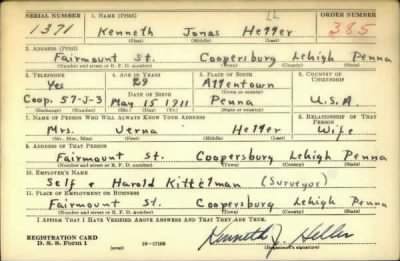 SERIAL NUMBER 1. NAME (Print) ORDER NUMBER
1371 Kenneth Jonas Heller 385
(First) (Middle) (Last)
2. ADDRESS (Print)
Fairmount St. Coopersburg Lehigh Penna
(Number and street or R. F. D. number) (Town) (County) (State)
3. TELEPHONE 4. AGE IN YEARS 5. PLACE OF BIRTH 6. COUNTRY OF CITIZENSHIP
Yes 29 Allentown
DATE OF BIRTH (Town or county)
Coop. 57-J-3 May 15 1911 Penna U.S.A.
(Exchange) (Number) (Mo.) (Day) (Yr.) (State or country)
7. NAME OF PERSON WHO WILL ALWAYS KNOW YOUR ADDRESS 8. RELATIONSHIP OF THAT PERSON
Mrs. Verna Heller Wife
(Mr., Mrs., Miss) (First) (Middle) (Last)
9. ADDRESS OF THAT PERSON
Fairmount St. Coopersburg Lehigh Penna
(Number and street or R. F. D. number) (Town) (County) (State)
10. EMPLOYER'S NAME
Self + Harold Kittelman (Surveyor)
11. PLACE OF EMPLOYMENT OR BUSINESS
Fairmount St. Coopersburg Lehigh Penna
(Number and street or R. F. D. number) (Town) (County) (State)
I AFFIRM THAT I HAVE VERIFIED ABOVE ANSWERS AND THAT THEY ARE TRUE.
REGISTRATION CARD
D. S. S. Form 1 (over) 16-17105 Kenneth J. Heller
(Registrant's signature)